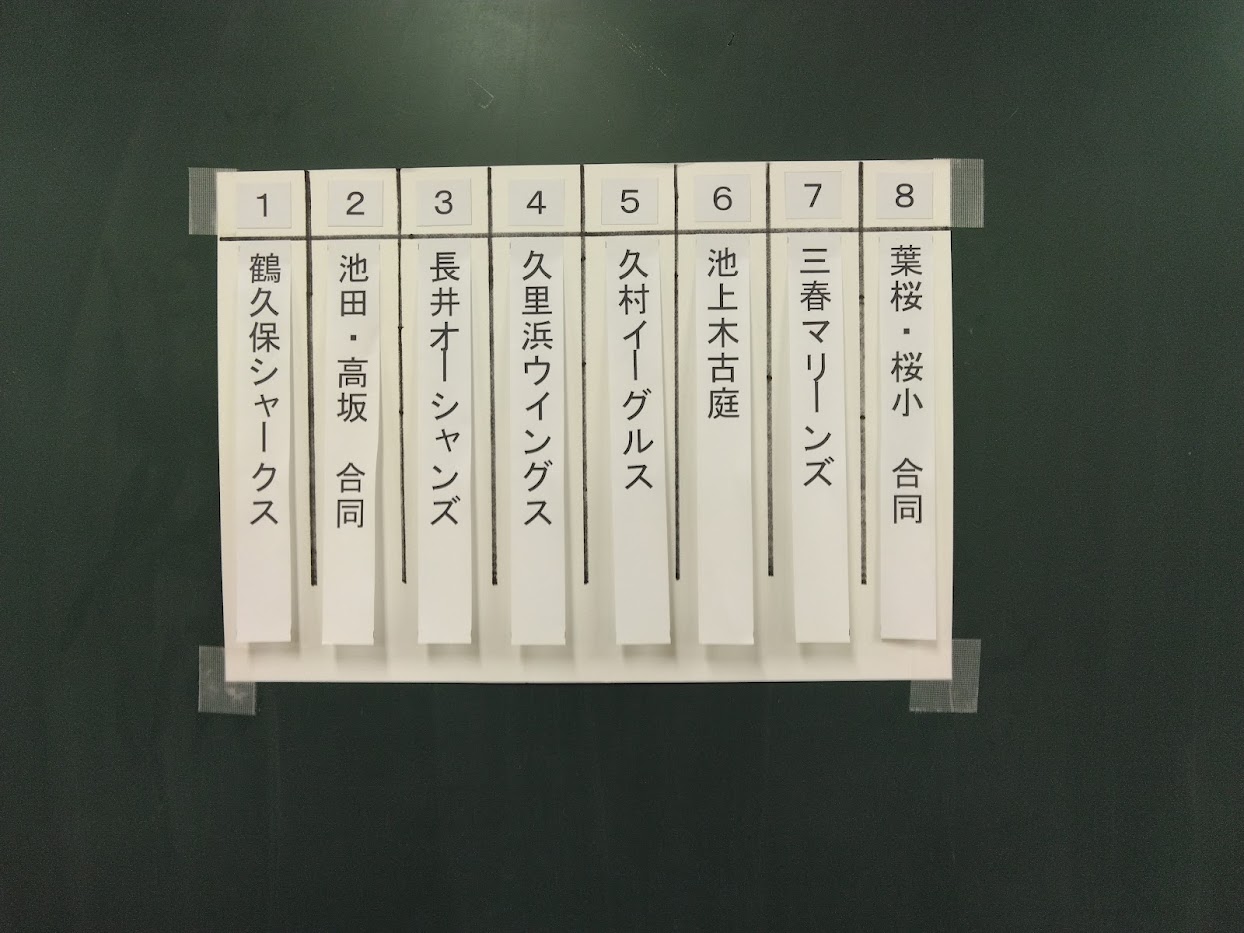 1
鶴久保シャークス
2
池田・高坂　合同
3
長井オーシャンズ
4
久里浜ウイングス
5
久村イーグルス
6
池上木古庭
7
三春マリーンズ
8
葉桜・桜小　合同